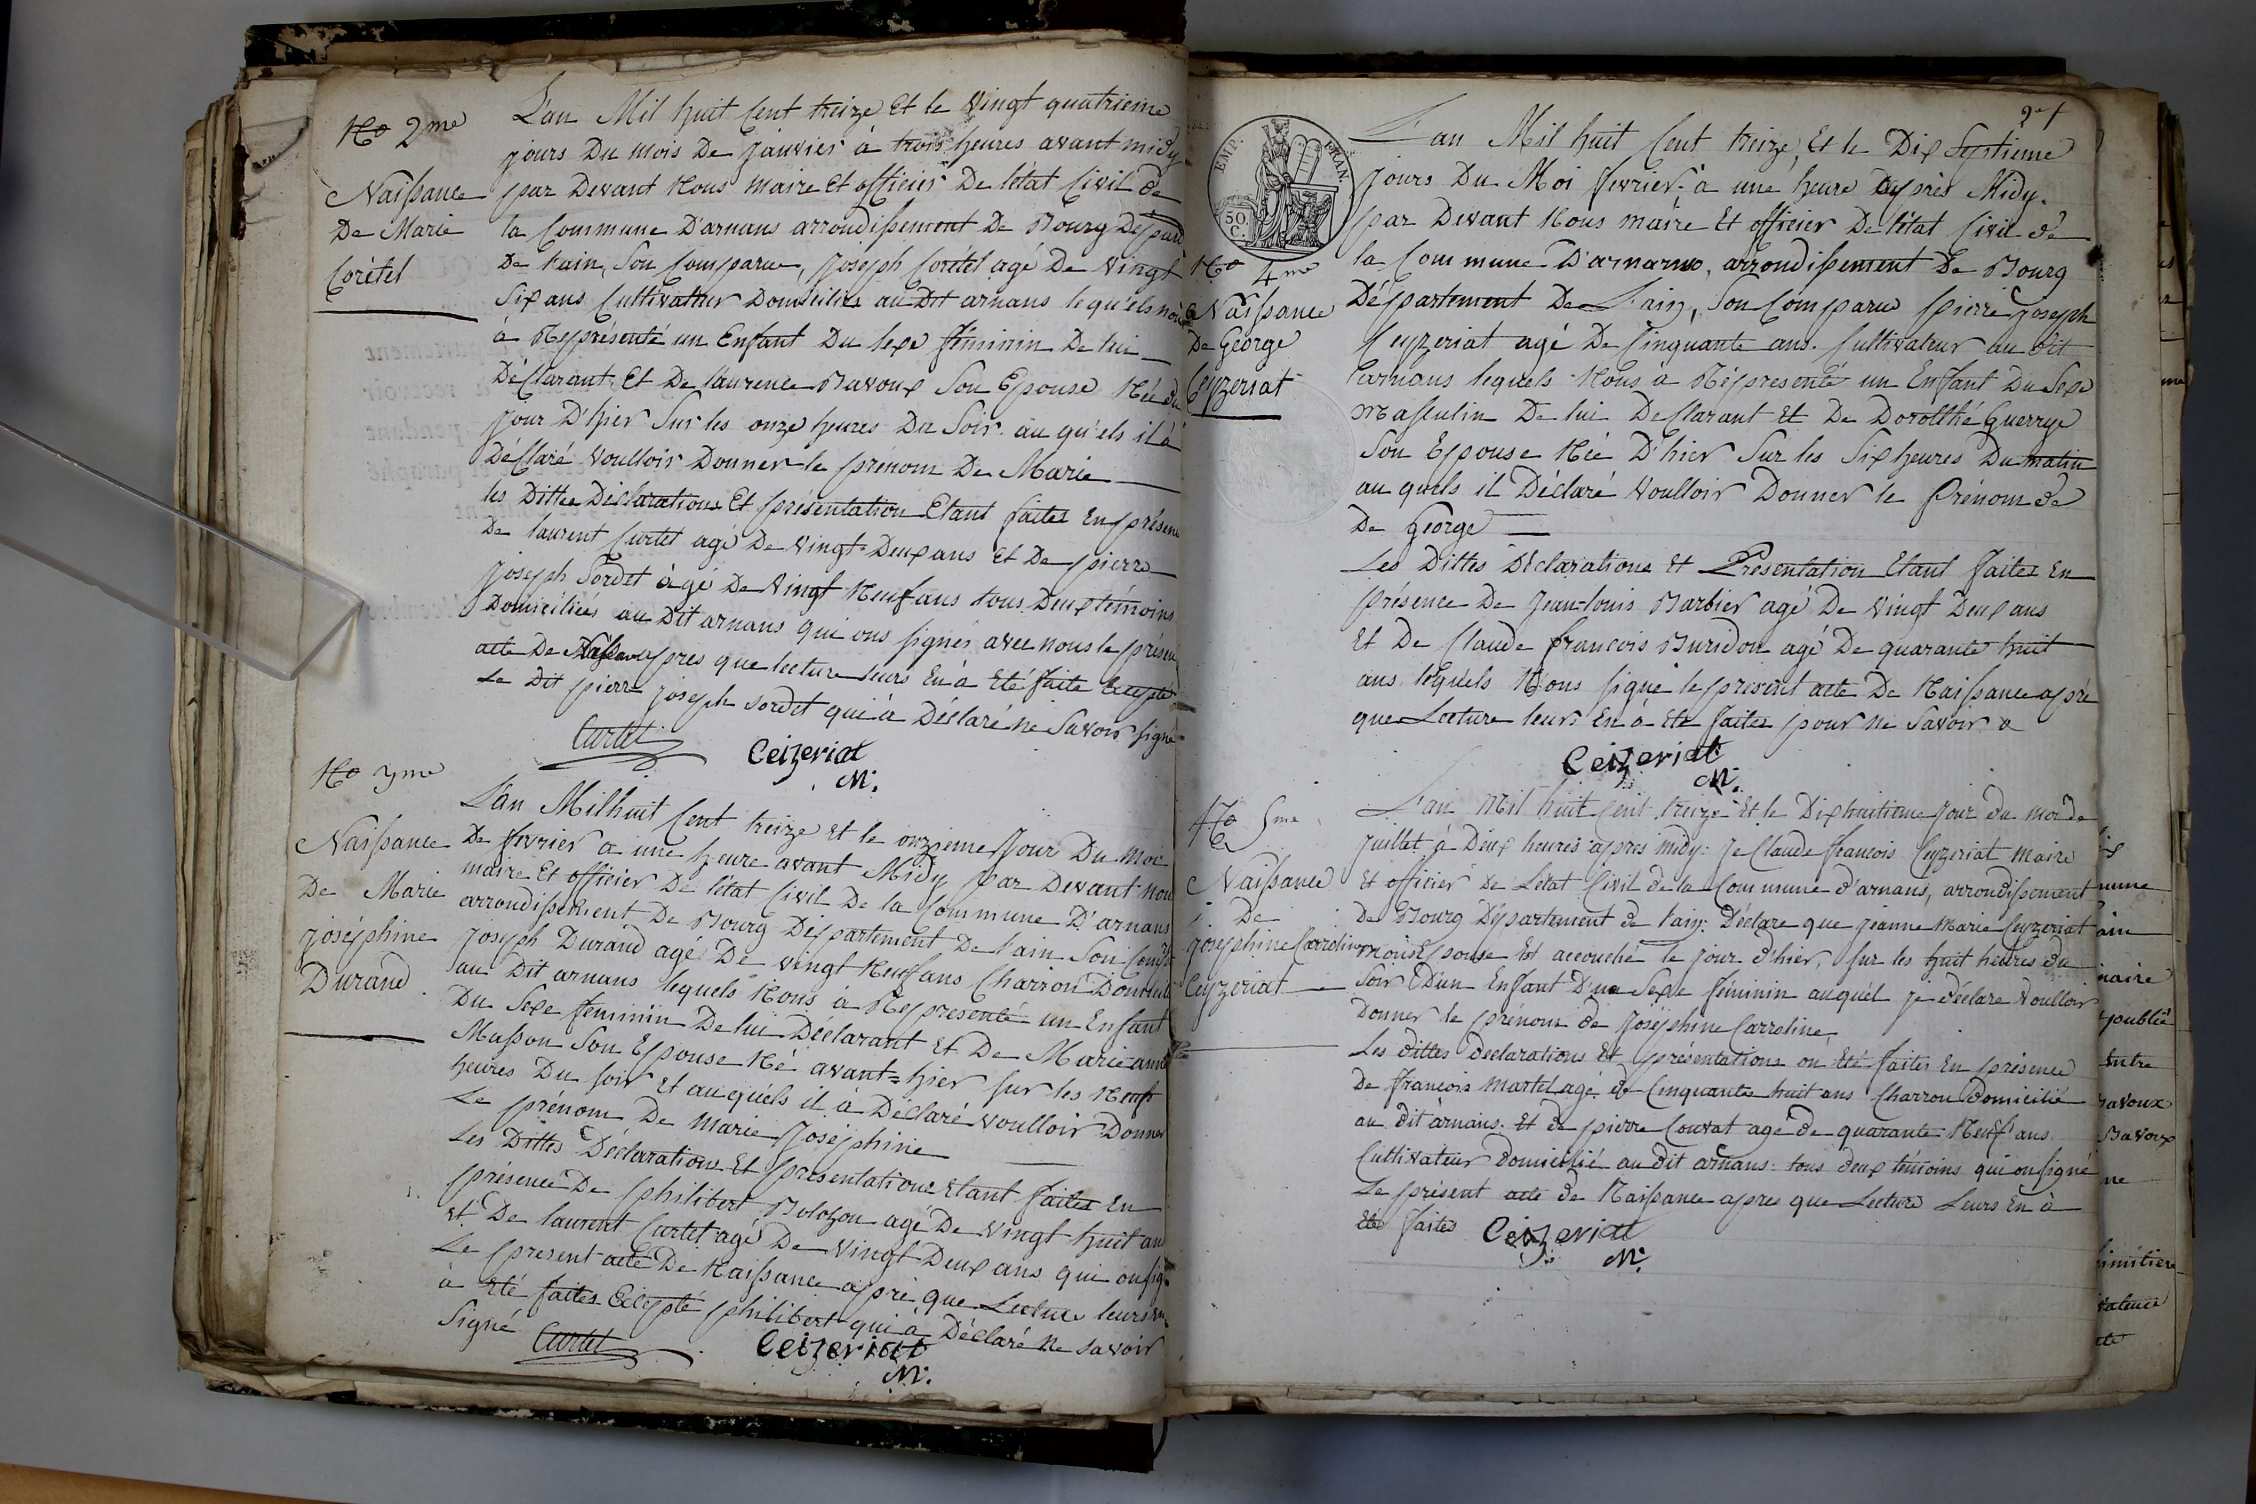 No 2me
Naissance
De Marie
Corétel
L'an Mil huit Cent treize Et le Vingt quatrieme
jours Du mois De Janvier à trois heures avant midy
par Devant Nous Maire Et officier De l'état Civil de
la Commune D'arnans arrondissement De Bourg Départ
De l'ain, Son Comparu, Joseph Corétel agé De Vingt
Six ans Cultivateur Domiciliés au Dit arnans lequ'els nous
à Représenté un Enfant Du Sexe féminin De lui
Déclarant Et De laurence Bavoux Son Epouse Née du
jour D'hier Sur les onze heures Du Soir au qu'els il à
Déclaré Voulloir Donner le prénom De Marie
les Dittes Déclarations Et présentation Etant faites En présen
De laurent Curtet agé De Vingt Deux ans Et De pierre
Joseph Sordet àgé De Vingt Neuf ans tous Deux témoins
Domiciliés au Dit arnans qui ons signés avec nous le présen
acte De Naissance apres que lecture leurs En à Eté faite Excepté
Le Dit pierre joseph sordet qui à Déclaré ne Savoir signé
Curtet
Ceizeriat
M.
No 3me
Naissance
De Marie
joséphine
Durand
L'an Mil huit Cent treize et le onzieme Jour Du Moi
De fevrier a une heure avant Midy par Devant nou
maire Et officier De l'état Civil De la Commune D'arnans
arrondissement De Bourg Département De l'ain Son Comp
Joseph Durand agé De vingt Neuf ans Charron Domicilié
au Dit arnans lequels Nous à Représenté un Enfant
Du Sexe féminin De lui Déclarant Et De Marie anne
Masson Son Epouse Né avant-hier sur les Neuf
heures Du soir Et au quéls il à Déclaré voulloir Donner
Le prénom De Marie Joséphine
Les Dittes Déclarations Et présentations Etant faites En
présence De philibert Bolozon agé De Vingt huit an
Et De laurent Curtet agé De Vingt Deux ans qui on sig
Le present acte De Naissance apré que Lecture leurs en
à Eté faites Excepté philibert qui à Déclaré Ne savoir
Signé
Curtet
Ceizeriat
M.
TIMP.
FRAN.
50
C.
No 4me
Naissance
De George
Ceyzeriat
L'an Mil huit Cent treize, Et le Dix Septieme
Jours Du Moi fevrier à une heure après Midy.
par Devant Nous maire Et officier De l'état Civil de
la Commune D'arnans, arrondissement De Bourg
Département De L'ain, Son Comparu pierre joseph
Ceyzeriat agé De Cinquante ans. Cultivateur au dit
arnans lequels Nous à Répresenté un Enfant Du Sexe
Masculin De lui Déclarant Et De Dorolthé Guerrye
Son Epouse Née D'hier Sur les Six heures Du matin
au quels il Déclaré Voulloir Donner le Prénom de
De George
Les Dittes Déclarations Et Présentation Etant faites En
présence De Jean-louis Barbier agé De Vingt Deux ans
Et De Claude françois Buridon agé De quarante huit
ans lequels N'ons signé le present acte De Naissance apré
que Lecture leurs En à Eté faites pour ne Savoir
Ceizeriat
M.
No 5me
Naissance
De
joséphine Carroline
Ceyzeriat
L'an Mil huit Cent treize Et le Dix huitieme jour du moi de
Juillet à Deux heures apres midy: Je Claude francois Ceyzeriat Maire
Et officier De L'état Civil de la Commune d'arnans, arrondissement
De Bourg Département de l'ain: Déclare que jeanne Marie Ceyzeriat
mons Epouse Est accouché le jour d'hier, sur les huit heures du
Soir D'un Enfant D'un Sexe féminin auquél je déclare Voulloir
Donner le prénom de Joséphine Carroline,
Les dittes declarations Et présentations on Eté faites En présence
De francois Martel agé de Cinquante huit ans Charron domicilié
au dit arnans. Et de pierre Couvat agé de quarante Neuf ans
Cultivateur domicilié au dit arnans: tous deux témoins qui on signé
Le présent acte de Naissance apres que Lecture Leurs En à
Eté faites
Ceizeriat
M.